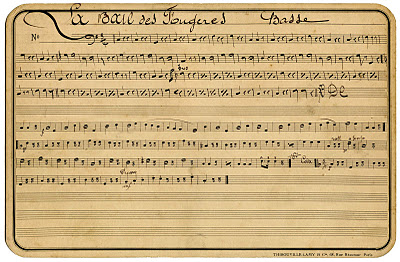 La Bal des Fougeres Basse
No
DC
Coda
THIBOUVILLE-LAMY & Cie, 68, Rue Réaumur Paris